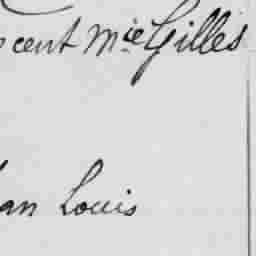 cent Mie Gilles
an Louis